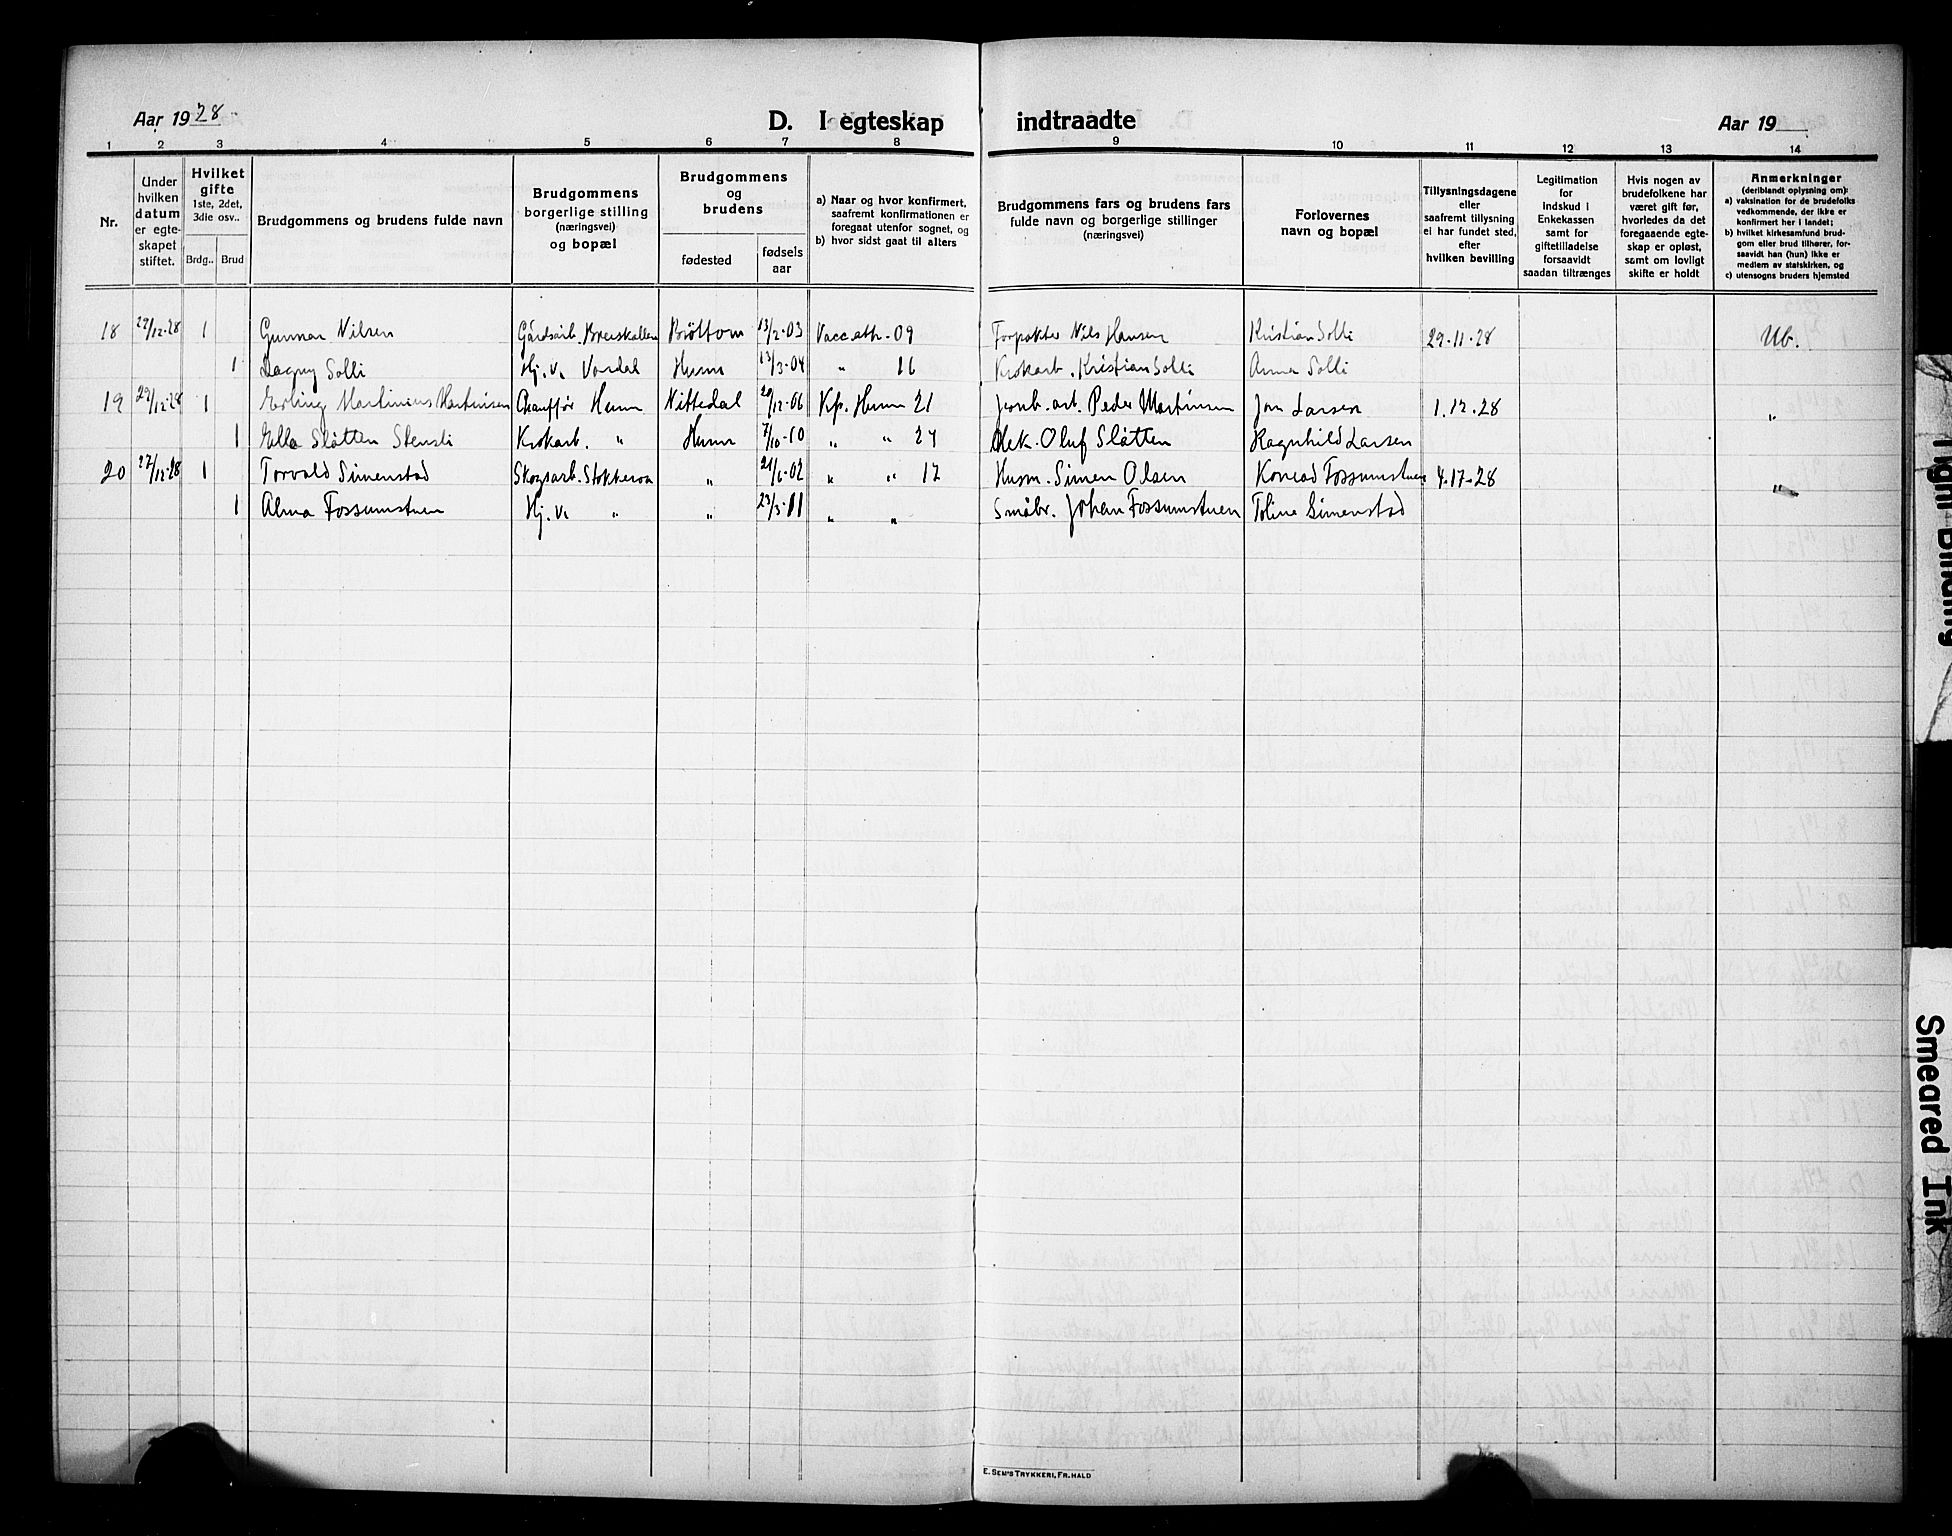 Aar 1928
D. I egteskap indtraadte
Aar 19
1 2 3 4 5 6 7 8 9 10 11 12 13 14
Nr.
Under hvilken datum er egteskapet stiftet.
Hvilket gifte 1ste, 2det, 3die osv..
Brdg.. Brud
Brudgommens og brudens fulde navn
Brudgommens borgerlige stilling (næringsvei) og bopæl
Brudgommens og brudens
fødested
fødsels aar
a) Naar og hvor konfirmert, saafremt konfirmationen er foregaat utenfor sognet, og
b) hvor sidst gaat til alters
Brudgommens fars og brudens fars fulde navn og borgerlige stillinger (næringsvei)
Forlovernes navn og bopæl
Tillysningsdagene eller saafremt tillysning ei har fundet sted, efter hvilken bevilling
Legitimation for indskud i Enkekassen samt for giftetilladelse forsaavidt saadan tiltrænges
Hvis nogen av brudefolkene har været gift før, hvorledes da det foregaaende egteskap er opløst, samt om lovligt skifte er holdt
Anmerkninger (deriblandt oplysning om):
a) vaksination for de brudefolks vedkommende, der ikke er konfirmert her i landet;
b) hvilket kirkesamfund brudgom eller brud tilhører, forsaavidt han (hun) ikke er medlem av statskirken, og
c) utensogns bruders hjemsted
18 1 Gunnar Nilsen Gårdsarb. Brøttom 13/2-03 Vacc. att. 09 Forpakter Nils Hansen Kristian Solli 29-11-28 Ub.
1 Dagny Solli Hj. v. Vardal Hurum 13/3-04 " 16 Krokarb. Kristian Solli Anna Solli
19 1 Erling Martinius Martinsen Chauffør Nittedal 20/12-06 21 Jernb. arb. Peder Martinsen Jon Larsen 1.12.28 "
1 Ella Slåtten Stensli Krokarb. " 7/10-10 " " 24 Oluf Slåtten Ragnhild Larsen
20 27/12-28 1 Torvald Simenstad Skogsarb. " 21/6-02 " " 17 Husm. Simen Olsen Konrad Fossumstuen "
1 Alma Fossumstuen Hj. v. " " 23/3-11 " " Småbr. Johan Fossumstuen Toline Simenstad
E. SEM'S TRYKKERI, FR.HALD
Tight Binding
Smeared Ink